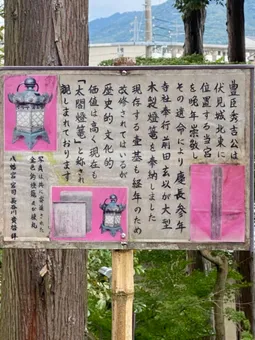 豊臣秀吉公は
伏見城北東に
位置する当宮
を晩年崇敬し
その遺命により慶長参年
寺社奉行前田玄以が大型
木製燈籠を奉納しました
現存する壹基も経年のため
改修されてはいるが
歴史的文化的
価値は高く現在も
「太閤燈籠」と称され
親しまれております